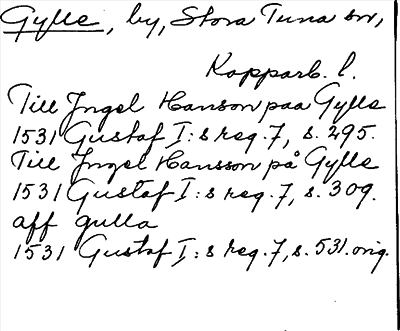 Gylle, by, Stora Tuna sn,
Kopparb. l.
Till Jngel Hanson paa Gylle
1531 Gustaf I:s reg. 7, s. 295.
Till Jngel Hansson på Gylle
1531 Gustaf I:s reg. 7, s. 309.
aff gulla
1531 Gustaf I:s reg. 7, s. 531. orig.